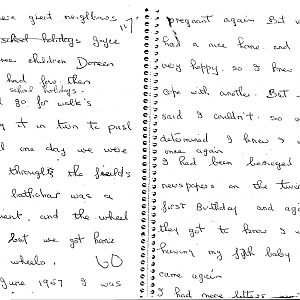 were great neighbours,
school holidays Joyce
children Doreen
had few then
school holidays.
go for walk's
it in turn to push
one day we were
through the fields
was a
and the wheel
but we got home
wheels.
60
June 1967 I was
167
pregnant again But
had a nice home. and
very happy. so I knew
cope with another. But
said I couldn't. so
determined I knew I
once again
I had been besieged
newspapers on the twins
first Birthday and
they got to know I
having my fifth baby
came again
I had more letters